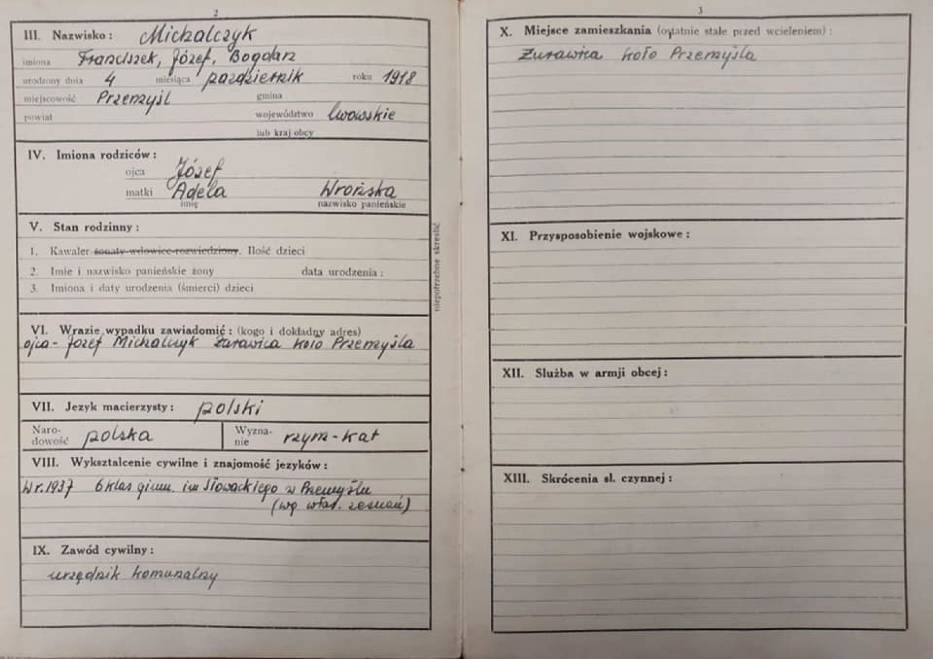 2
III. Nazwisko: Michalczyk
imiona Franciszek, Józef, Bogdan
urodzony dnia 4 miesiąca październik roku 1918
miejscowość Przemyśl gmina
powiat województwo lwowskie
lub kraj obcy
IV. Imiona rodziców:
ojca Józef
matki Adela Wrońska
imię nazwisko panieńskie
V. Stan rodzinny:
1. Kawaler żonaty-wdowiec-rozwiedziony. Ilość dzieci
2. Imie i nazwisko panieńskie żony data urodzenia:
3. Imiona i daty urodzenia (śmierci) dzieci
niepotrzebne skreślić
VI. Wrazie wypadku zawiadomić: (kogo i dokładny adres)
ojca - Józef Michalczyk Żurawica koło Przemyśla
VII. Język macierzysty: polski
Naro-
dowość polska
Wyzna-
nie rzym-kat
VIII. Wykształcenie cywilne i znajomość języków:
W r. 1937 6 klas gimn. im Słowackiego w Przemyślu
(wg włas. zeznań)
IX. Zawód cywilny:
urzędnik komunalny
3
X. Miejsce zamieszkania (ostatnie stałe przed wcieleniem):
Żurawica koło Przemyśla
XI. Przysposobienie wojskowe:
XII. Służba w armji obcej:
XIII. Skrócenia sł. czynnej: